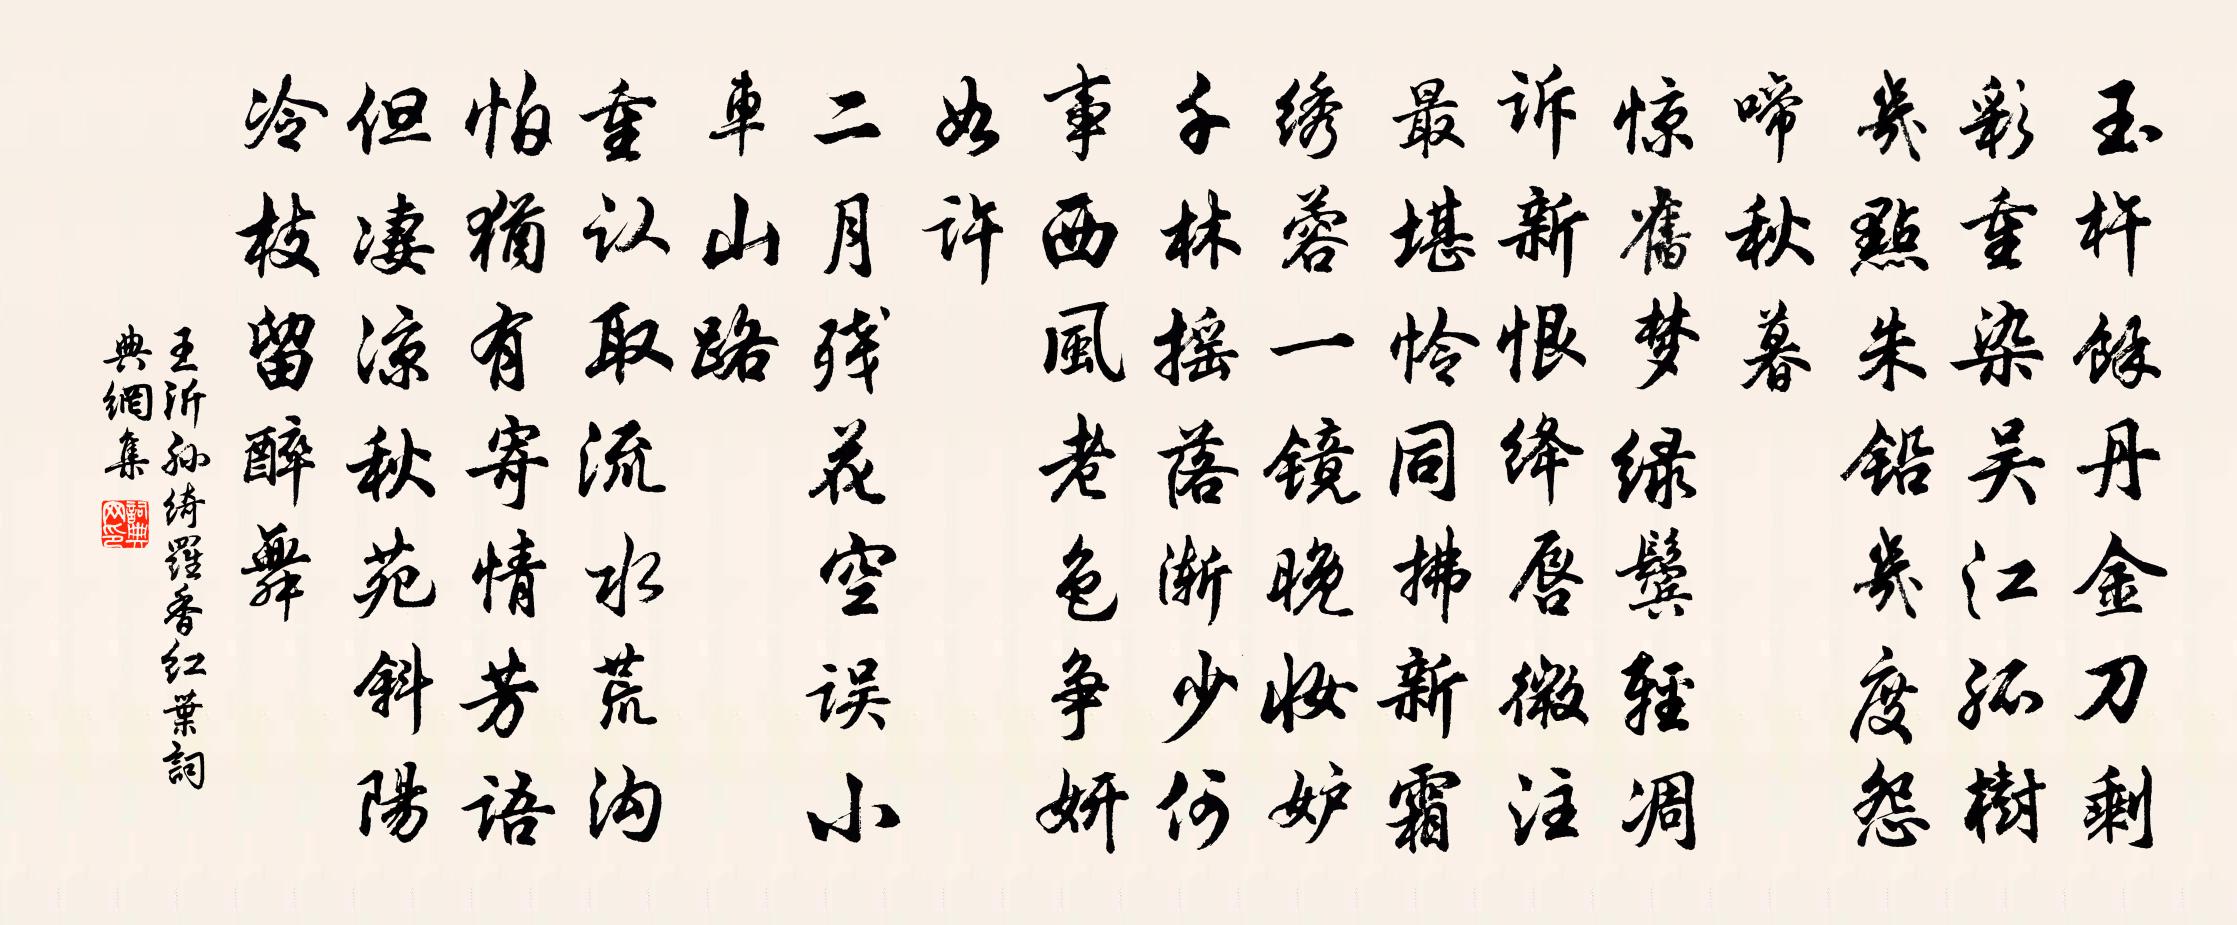 玉杵餘丹金刀剩
彩重染吴江孤樹
幾點朱铅幾度怨
啼秋暮
惊舊梦绿鬓輕凋
诉新恨绛唇微注
最堪怜同拂新霜
绣蓉一镜晚妆妒
千林摇落渐少何
事西風老色争妍
如许
二月残花空误小
車山路
重认取流水荒沟
怕猶有寄情芳语
但凄凉秋苑斜陽
冷枝留醉舞
王沂孙绮羅香红葉詞
典網集
詞典网印